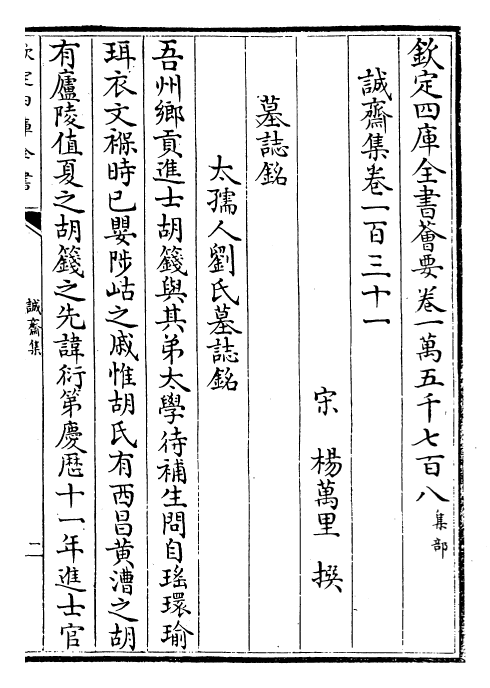 欽定四庫全書薈要卷一萬五千七百八 集部
誠齋集卷一百三十一
宋 楊萬里 撰
墓誌銘
太孺人劉氏墓誌銘
吾州鄉貢進士胡籛與其弟太學待補生問自瑤環瑜
珥衣文褓時已嬰陟岵之戚惟胡氏有西昌黄漕之胡
有廬陵值夏之胡籛之先諱衍第慶厯十一年進士官
欽定四庫全書
誠齋集
二